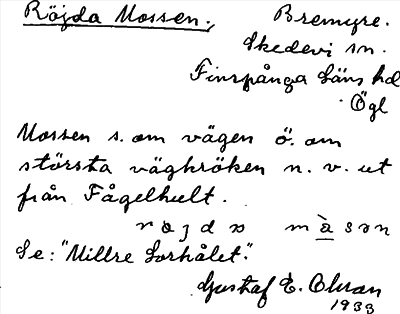 Röjda Mossen.,
Bremyre.
Skedevi sn.
Finspånga Läns hd
Ögl
Mossen s. om vägen ö. om
största vägkröken n. v. ut
från Fågelhult.
Se: "Millre Lorhålet."
Gustaf E.
1933